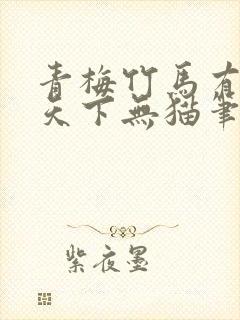 青梅竹馬有
天下無貓筆
紫夜墨